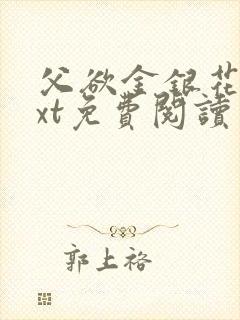 父欲金银花
xt免費閱讀
郭上裕